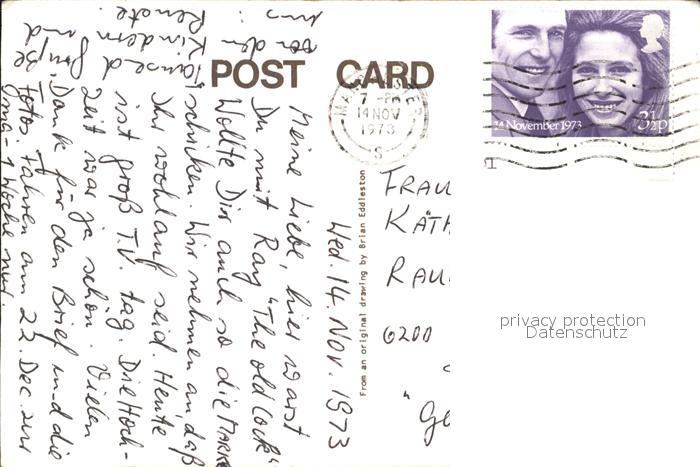 POST CARD
MA
7-PM
14 NOV
1973
S
14 November 1973
3½p
From an original drawing by Brian Eddleston
Wed. 14. Nov. 1973
Meine Liebe, hier warst
Du mit Ray "The old Cock"
Wollte Dir auch so die MARKE
schiken. Wir nehmen an daß
Ihr wohlauf seid. Heute
ist groß T.V. tag. Die Hoch-
zeit war ja schön. Vielen
Dank für den Brief und die
Fotos. Fahren am 22. Dec. zur
Oma - 1 Woche nur.
Grüße
von den
Kindern
Renate.
FRAU
KÄTH
RAU
6200
"Ge
privacy protection
Datenschutz